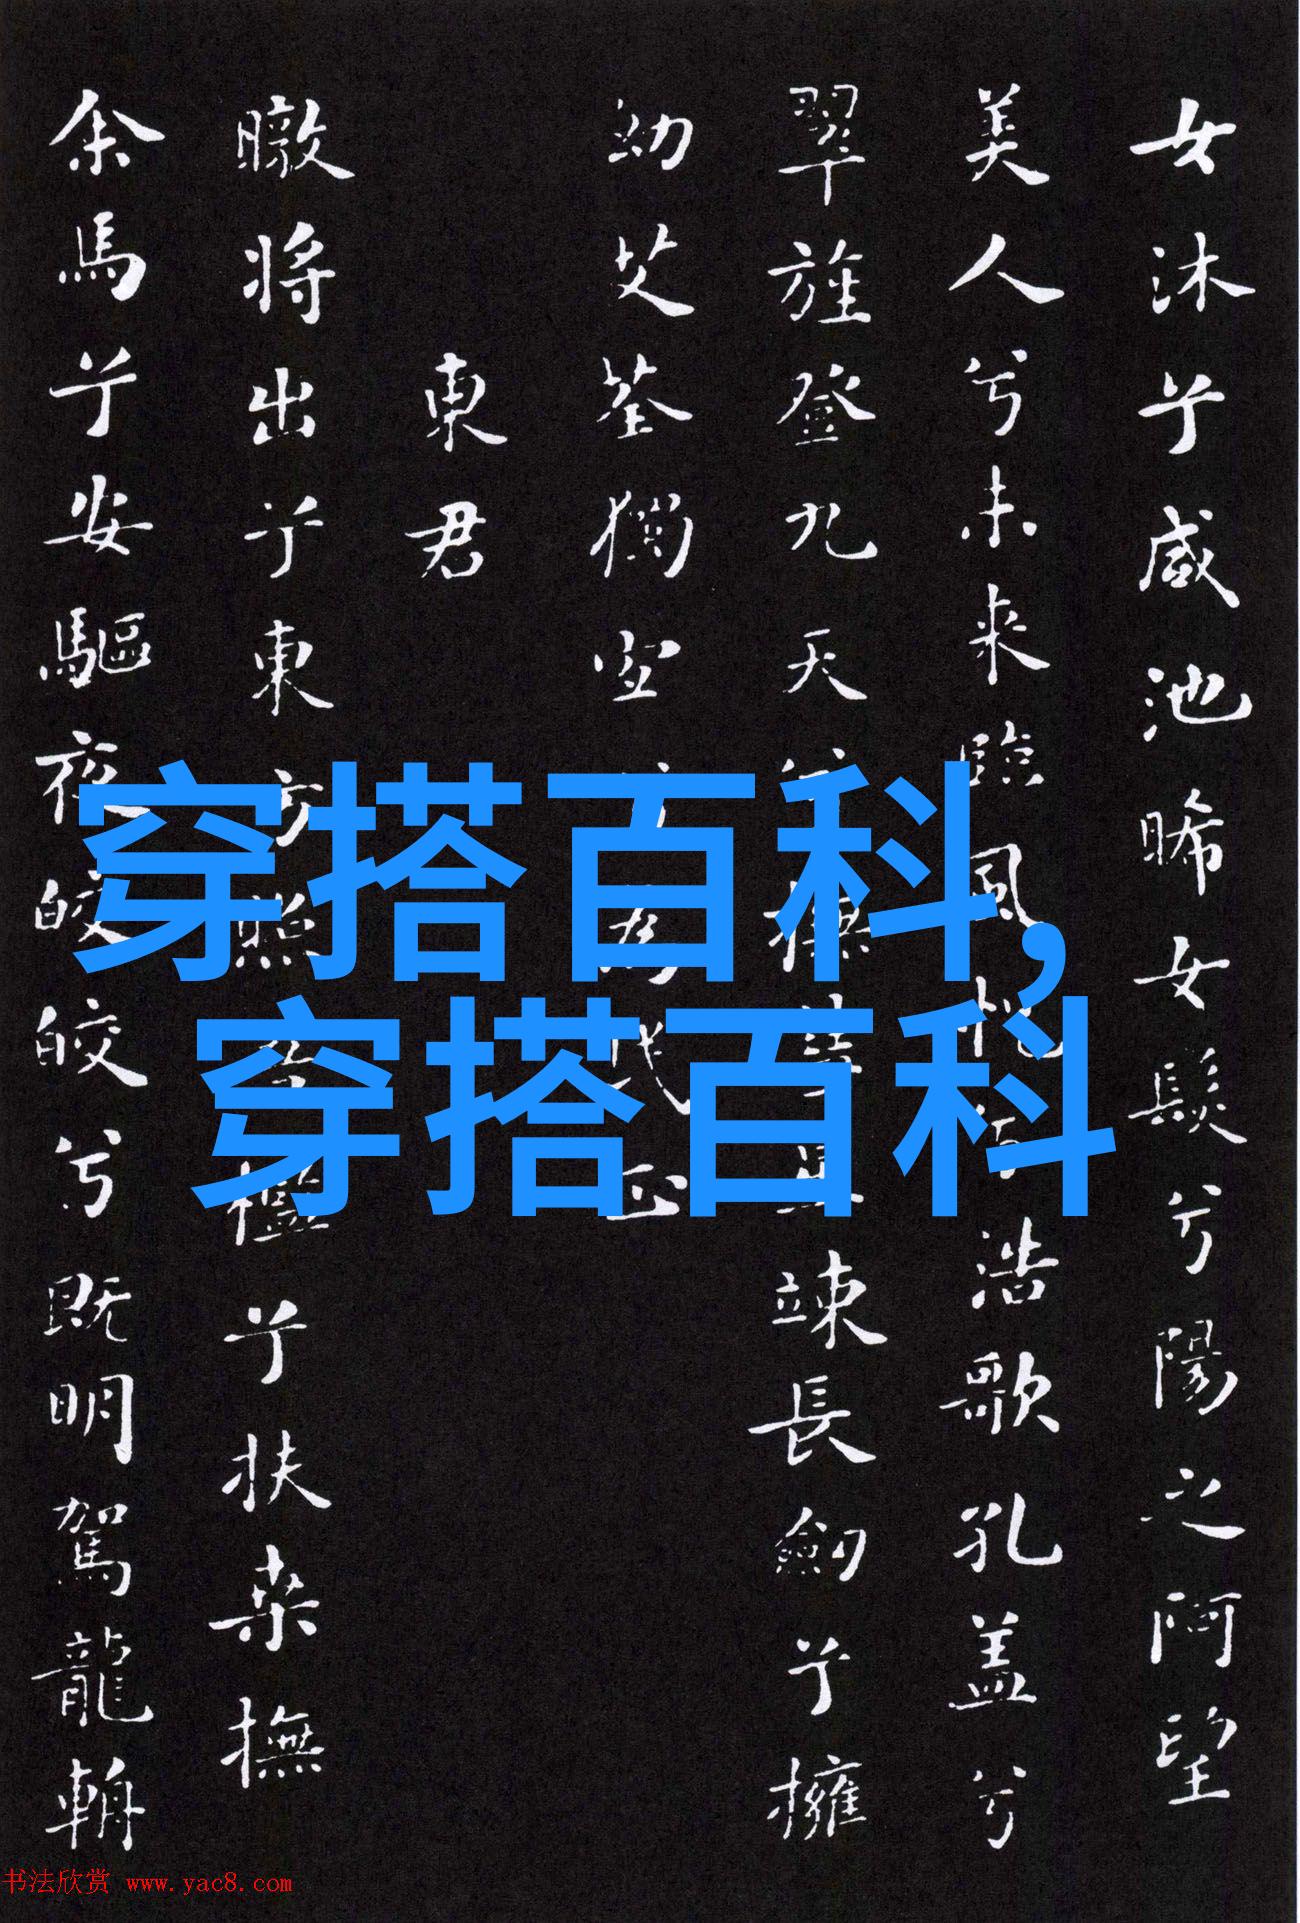 女沐兮咸池晞女髮兮陽之阿望
美人兮未来臨風怳兮浩歌孔盖兮
翠旌登九天兮撫彗星竦長劍兮擁
幼艾荃獨宜兮為民正
東君
暾将出兮東方照吾檻兮扶桑撫
余馬兮安驅夜皎皎兮既明駕龍輈
穿搭百科,
穿搭百科
书法欣赏 www.yac8.com